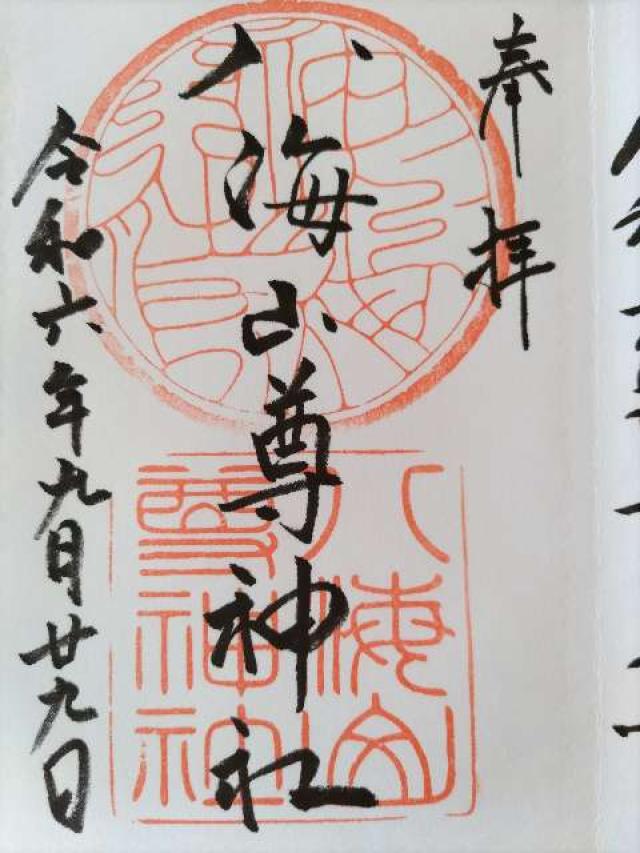 奉拝
八海山尊神社
令和六年九月廿九日
八海山
尊神社